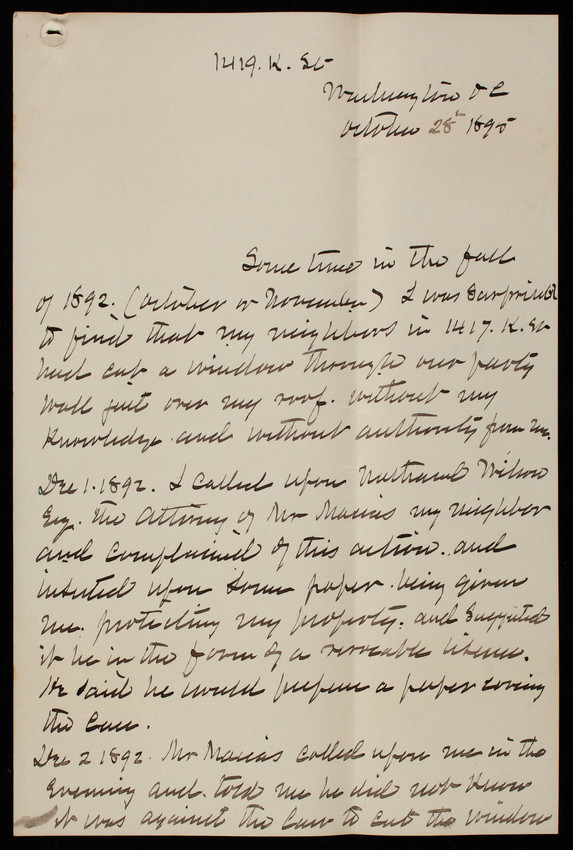 1419. K. St
Washington D C
October 28th 1895
Some time in the fall
of 1892. (October or November) I was surprised
to find that my neighbors in 1417. K. St
had cut a window through our party
wall just over my roof. without my
knowledge and without authority from me.
Dec 1. 1892. I called upon Nathaniel Wilson
Esq. the Attorney of Mr Macias my neighbor
and complained of this action. and
insisted upon some paper being given
me. protecting my property. and suggested
it be in the form of a revocable license.
He said he would prepare a paper covering
the case.
Dec 2 1892. Mr Macias called upon me in the
evening and told me he did not know
it was against the law to cut the window